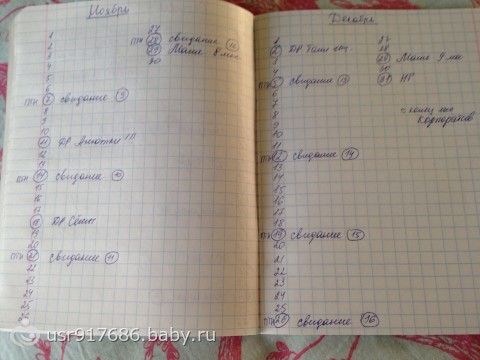 Ноябрь
1
2
3
4
5
6
птн 7 свидание 9
8
9
10
11 ДР Анютки
12
13
птн 14 свидание 10
15
16
17
18 ДР
19
20
птн 21 свидание 11
22
23
24
25
26
27
птн 28 свидание 12
29 Маше 8 мес
30
Декабрь
1
2 ДР Тани
3
4
птн 5 свидание 13
6
7
8
9
10
11
птн 12 свидание 14
13
14
15
16
17
18
птн 19 свидание 15
20
21
22
23
24
25
птн 26 свидание 16
27
28
29 Маше 9 мес
30
31 НГ
≈ конец мес
Корпоратив
usr917686.baby.ru